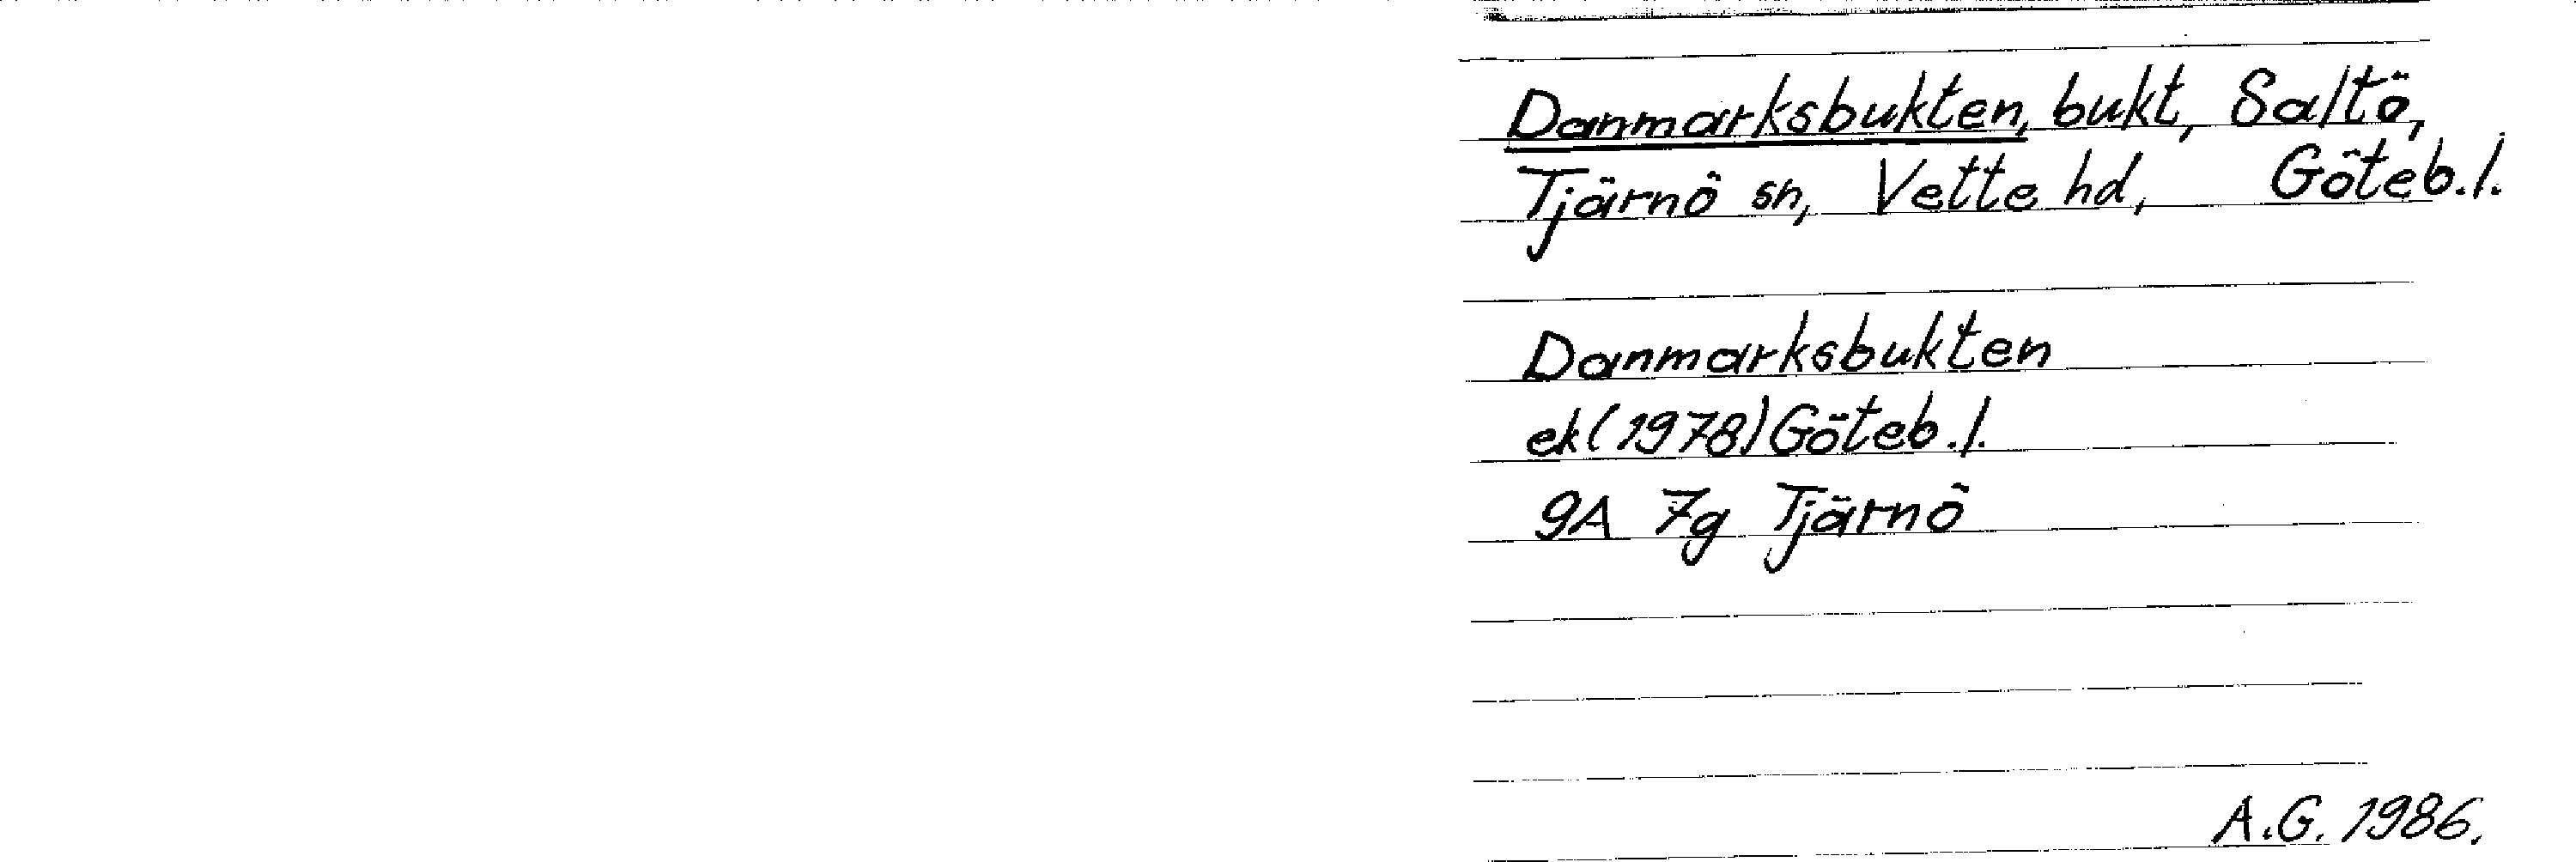 Danmarksbukten, bukt, Saltö,
Tjärnö sn, Vette hd, Göteb.l.
Danmarksbukten
ek(1978)Göteb.l.
9A 7g Tjärnö
A.G. 1986.